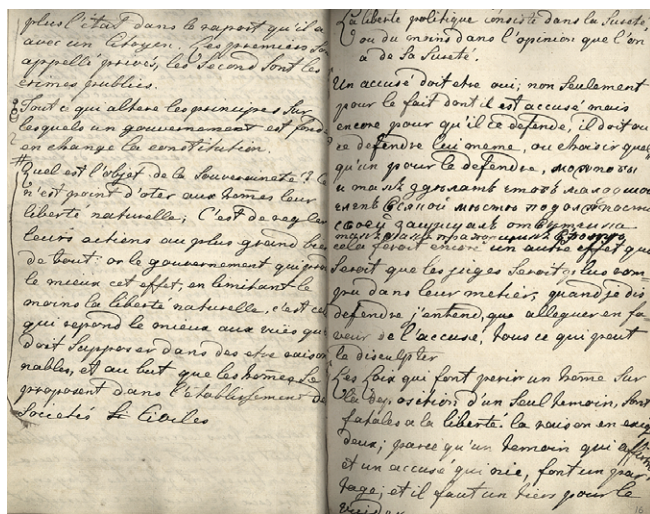 plus l'état dans le raport qu'il a
avec un Citoyen. Les premiers son
appellé privés, les Second Sont les
crimes publics.
Tout ce qui altere les principes Sur
lesquels un gouvernement est fondé
en change la constitution.
#
Quel est l'objet de la Souveraineté? Ce
n'est point d'oter aux homes leur
liberté naturelle; C'est de regler
leurs actions au plus grand bien
de tout: or le gouvernement qui
le mieux cet effet, en limitant le
moins la liberté naturelle, c'est
qui repond le mieux aux vües que
doit Supposer dans des etre raison
nables, et au but que les homes Se
proposent dans l'établissement de
Societés Civiles
La liberté politique consiste dans la Sureté
ou du moins dans l'opinion que l'on
a de Sa Sureté.
Un accusé doit etre oui, non Seulement
pour le fait dont il est accusé mais
encore pour qu'il ce defende, il doit ou
ce defendre lui meme, ou choisir quel
qu'un pour le defendre,
и
своею
cela feroit encore un autre effet qui
Seroit que les juges Seroit plus rom
pu dans leur metier, quand je dis
defendre j'entend, que alleguer en fa
veur de l'accusé, tous ce qui peut
le disculpter
Les Loix qui font perir un home Sur
la deposition d'un Seul temoin, Sont
fatales a la liberté. la raison en exige
deux; parce qu'un temoin qui affirme
et un accusé qui nie, font un par
tage; et il faut un tiers pour le
vuider
16